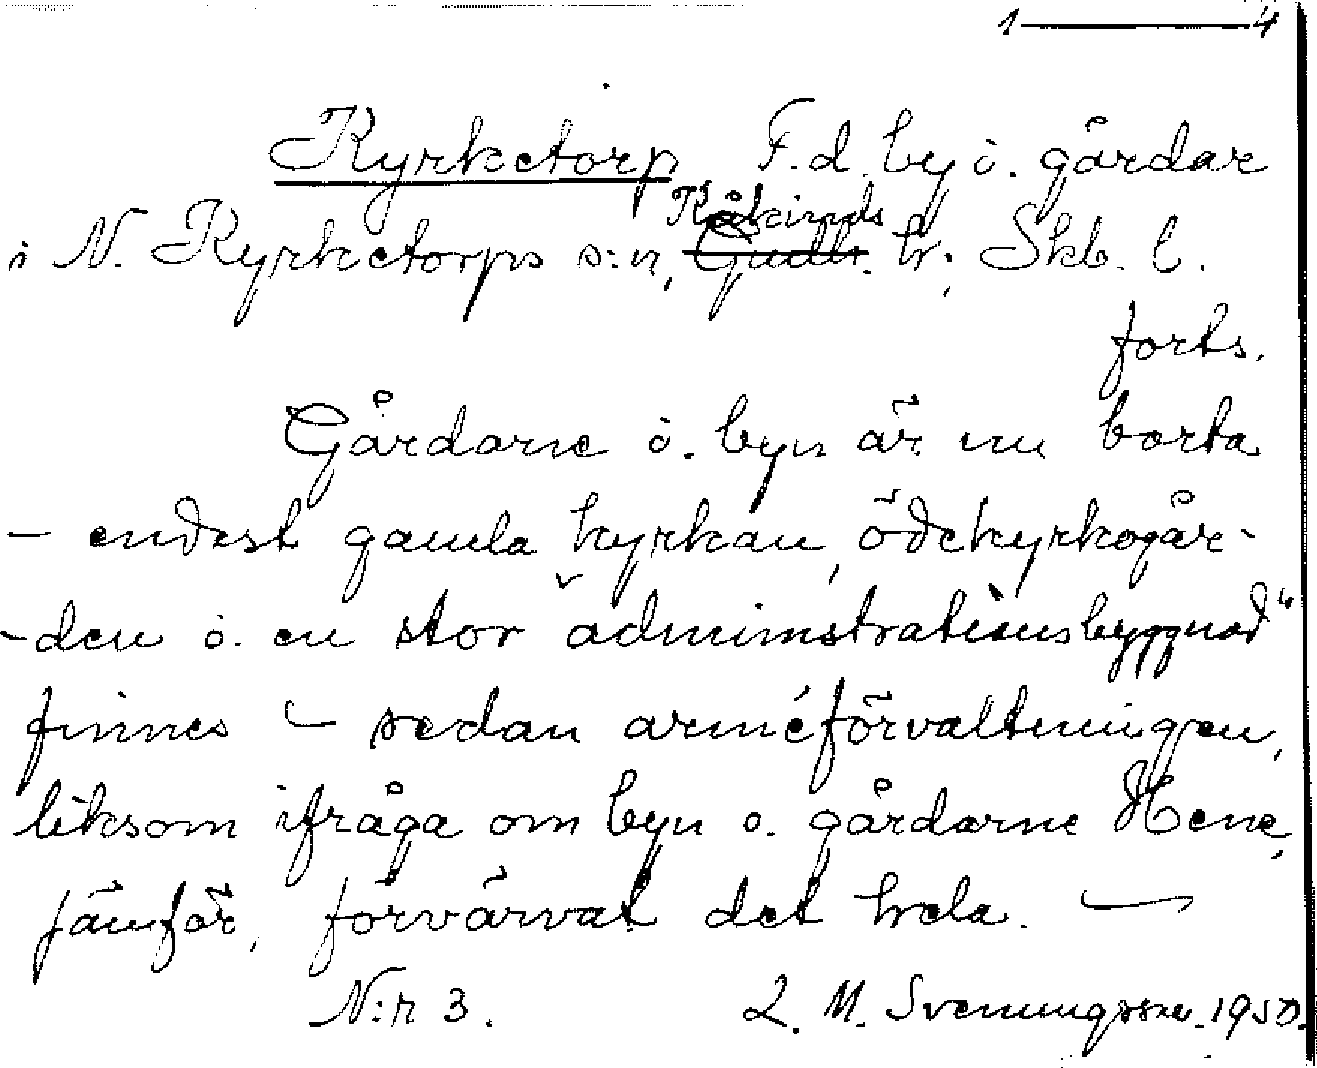 1 — 4
Kyrketorp F.d. by o. gårdar
Kåkinds
i N. Kyrketorps s:n, Gudh. hr; Skb. l.
forts.
Gårdarne o. byn är nu borta
- endast gamla kyrkan, ödekyrkogår-
-den o. en stor "administrationsbyggnad"
finnes - sedan arméförvaltningen,
liksom ifråga om byn o. gårdarne Hene,
jämför, förvärvat det hela. —
N:r 3. L. M. Svenungsson. 1950.